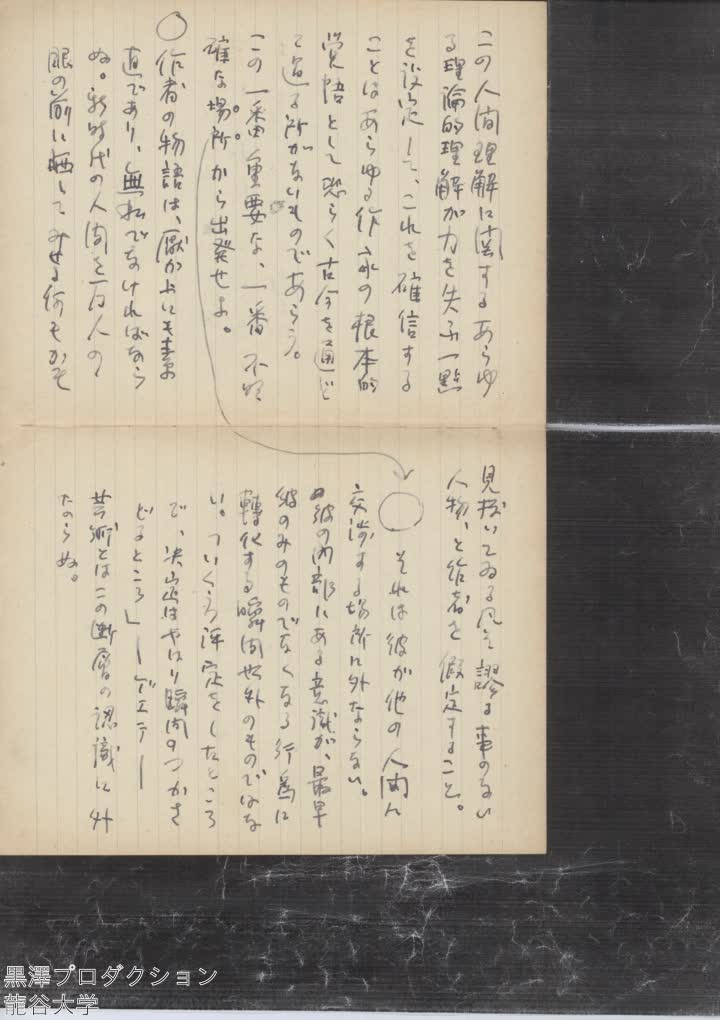 この人間理解に関するあらゆ
る理論的理解が力を失ふ一點
を設定して、これを確信する
ことはあらゆる作家の根本的
覚悟として恐らく古今を通じ
て逭る所がないものであらう。
この一番重要な、一番不明
確な場所から出発せよ。
○作者の物語は、厭か上にも素
直であり、無私でなければなら
ぬ。新時代の人間を万人の
眼の前に晒してみせる何もかも
見抜いてゐる凡そ謬る事のない
人物、と作者を假定すること。
○それは彼が他の人間と
交渉する場所に外ならない。
彼の内部にある意識が、最早
彼のみのものでなくなる行為に
轉化する瞬間以外のものではな
い。「いくら評定をしたところ
で、決定はやはり瞬間のつかさ
どるところ」―ゲエテ―
芸術とはこの断層の認識に外
ならぬ。
黒澤プロダクション
龍谷大学